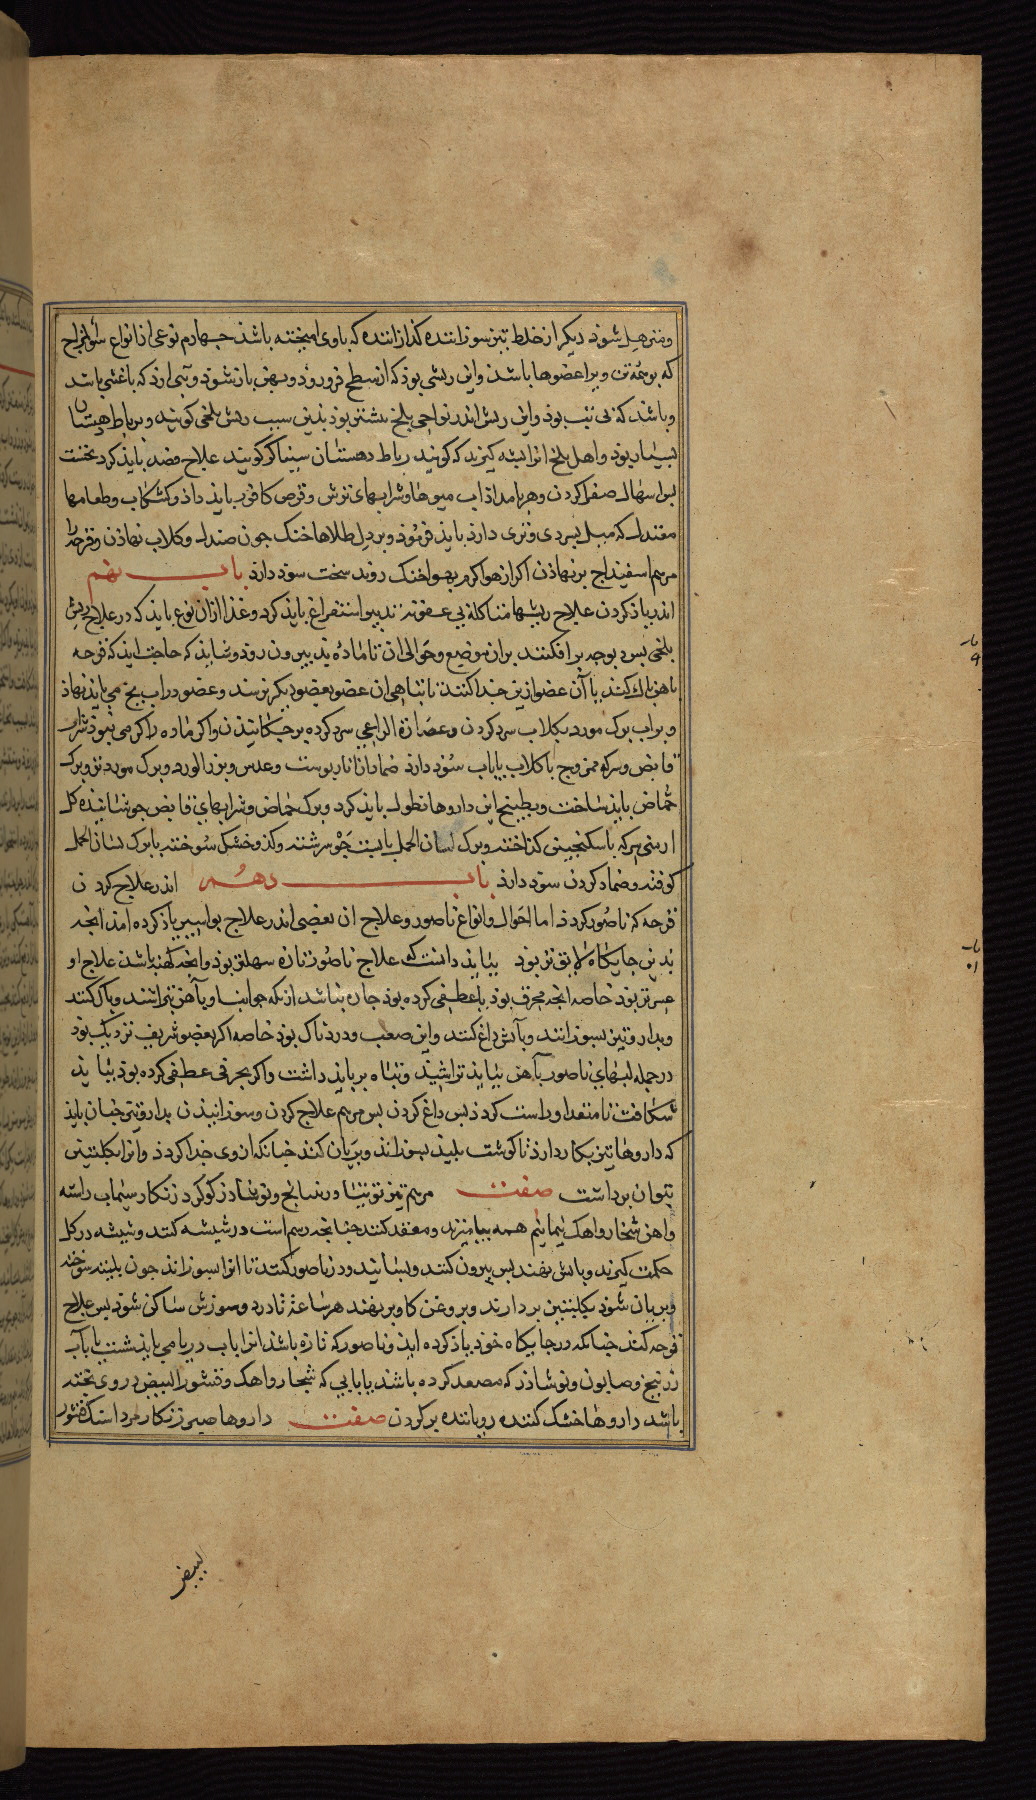 ومترهل شود دیکر از خلط تیز سوزاننده کدازاننده که باوی امیخته باشد جهارم نوعی از انواع سوالمزاج
که بر همه تن وبر اعضوها باشد واین ریشی بود که از سطح فرورود وبهن باز شود وتبی ارد که باغشی باشد
وباشد که بی تب بود واین ریش اندر نواحی بلخ بیشتر بود بدین سبب ریش بلخی کویند وبرباط دهستان
بسیار بود واهل بلخ انرا بشه کزید که کویند رباط دهستان نیز کویند علاج فصد باید کرد نخست
بس اسهال صفرا کردن وهر بامداد اب میوها وشرابهای ترش وقرص کافور باید داد وکشکاب وطعامها
معتدل که میل بسردی وتری دارد باید فرمود وبر دل طلاها خنک جون صندل وکلاب نهادن وقرحه را
مرهم اسفیداج بر نهادن اکر از هوا کرم بهوا خنک روند سخت سود دارد باب نهم
اندر یاذ کردن علاج ریشها متاکله بی عفونة تدبیر استفراغ باید کرد وغذا ازان نوع باید که در علاج ریش
بلخی بس دیوجه بر افکنند بران موضع وحوالی ان تا ماده بد بیرون رود وشاید که حاجت اید که قرحه
باهن باک کنند یا آن عضو از بن جدا کنند تا تباهی ان عضو بعضو دیکر نرسد وعضو در اب یخ می باید نهاذ
وبر اب برک مورد بکلاب سرد کردن وعصاره الراعی سرد کرده بر جکانیدن واکر ماده را کرمی نبود شراب
قابض وسرکه ممزوج باکلاب یا باب سود دارد ضماد از انار بوست وعدس وبزر الورد وبرک مورد تر وبرک
حماض باید ساخت وبطبیخ این داروها نطول باید کرد وبرک حماض وشرابهای قابض جوشانیده کل
ارمنی بسرکه باسکنجبین کداخته وبرک لسان الحمل بابست جو سرشته وکدو خشک سوخته با برک لسان الحمل
کوفته وضماد کردن سود دارد باب دهم اندر علاج کردن
قرحه که ناصور کردد اما احوال وانواع ناصور وعلاج ان بعضی اندر علاج بواسیر یاذ کرده امد انجه
بدین جایکاه لایق تر بود بباید دانست که علاج ناصور تازه سهلتر بود وانجه کهنه باشد علاج او
عسرتر بود خاصه انجه مجوف بود یا عطفی کرده بود جاره نباشد ازنکه جوانب او باهن بتراشند وباک کنند
وبدارو تیز بسوزانند وبآتش داغ کنند واین صعب ودردناک بود خاصه اکر بعضو شریف نزدیک بود
در جمله لبهای ناصور بآهن بباید تراشید وتباه بر باید داشت واکر بحرفی عطفی کرده بود بباید
شکافت تا منفذ او راست کردد بس داغ کردن بس مرهم علاج کردن وسوزانیدن بدارو تیز جنان باید
که داروها تیز بکار دارد تا کوشت بلید بسوزاند وبریان کند جنانکه ازوی جدا کردد وانرا بکلبتین
بتوان برداشت صفت مرهم تیز توتیا وزرنیخ ونوشادر کوکرد زنکار سیماب راسته
واهن شخار واهک نیمانیم همه بیامیزند ومصعد کنند جنانجه رسم است در شیشه کنند وشیشه در کل
حکمت کیرند وباتش نهند بس بیرون کنند وبسایند ودر ناصور کنند تا انرا بسوزاند جون بلید سوخته
وبریان شود بکلبتین بردارند وبروغن کاو بر نهند هر ساعة تا درد وسوزش ساکن شود بس علاج
قرحه کنند جنانکه در جایکاه خود یاذ کرده اید وناصور که تازه باشد انرا باب دریا می باید شست یا بآب
زرنیخ وصابون ونوشاذر که مصعد کرده باشند یا بابی که شخار واهک وقشور البیض در وی بخته
باشند داروها خشک کننده رویاننده بر کردن صفت داروها صبر زنکار مرداسنک قشور
البیض